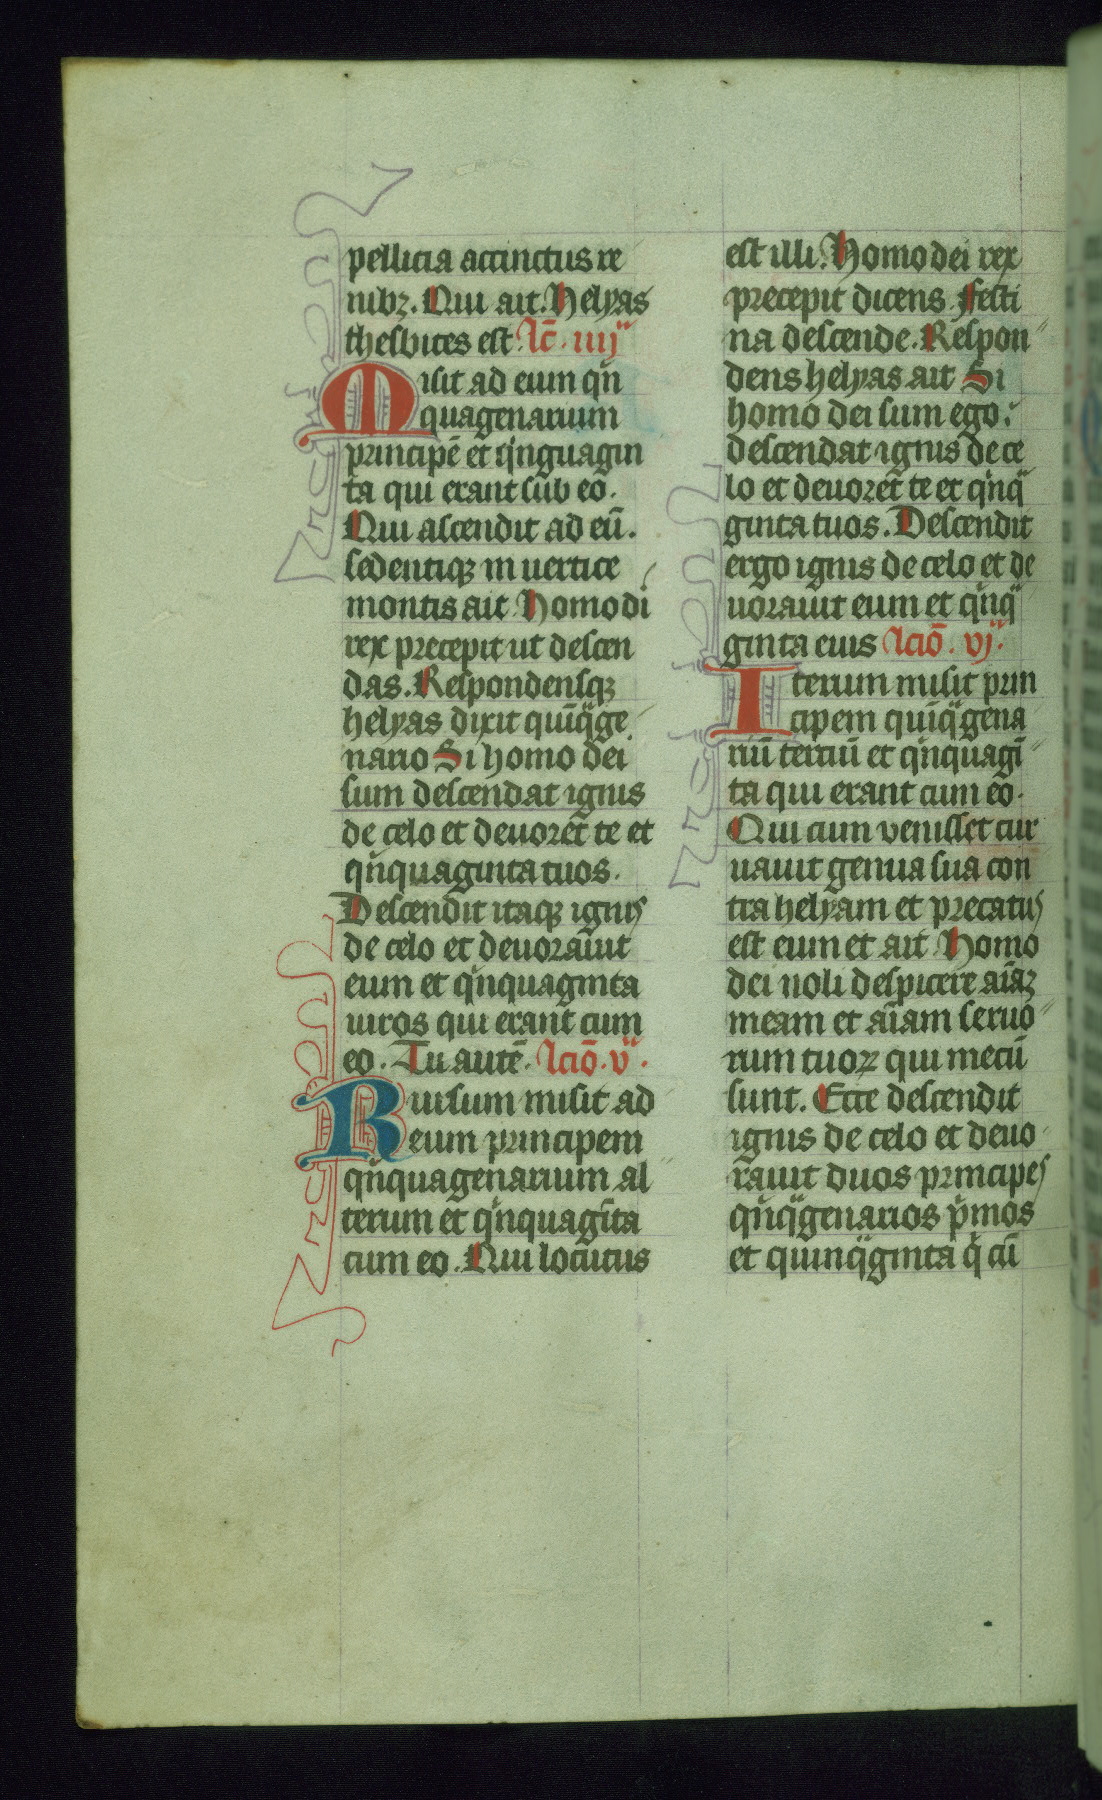 pellicia accinctus re
nibꝫ. Qui ait. Helyas
thesbites est. lc̄. iiij
Misit ad eum qn̄
quagenarium
principē et qi̅nguagin
ta qui erant sub eo.
Qui ascendit ad eū.
sedentiqꝫ in uertice
montis ait. Homo di
rex precepit ut descen
das. Respondensqꝫ
helyas dixit quīqᷓge
nario Si homo dei
sum descendat ignis
de celo et deuoret te et
qn̄quaginta tuos.
Descendit itaqꝫ ignis
de celo et deuorauit
eum et qn̄quaginta
uiros qui erant cum
eo. Tu autē. lcīo. v.
Rursum misit ad
eum principem
qn̄quagenarium al
terum et qn̄quagīta
cum eo. Qui locutus
est illi. Homo dei rex
precepit dicens. Festi
na descende. Respon
dens helyas ait Si
homo dei sum ego.
descendat ignis de ce
lo et deuoret te et qn̄qᷓ
ginta tuos. Descendit
ergo ignis de celo et de
uorauit eum et qn̄qᷓ
ginta eius lcīo. vj.
Iterum misit prin
cipem quīqᷓgena
riū terciū et qn̄quagī
ta qui erant cum eo.
Qui cum venisset cur
uauit genua sua con
tra helyam et precatus
est eum et ait. Homo
dei noli despicere aīaꝫ
meam et aīam seruo
rum tuoꝝ qui mecū
sunt. Ecce descendit
ignis de celo et deuo
rauit duos principes
qn̄qᷓgenarios pͥmos
et quinqᷓginta qͥ cū